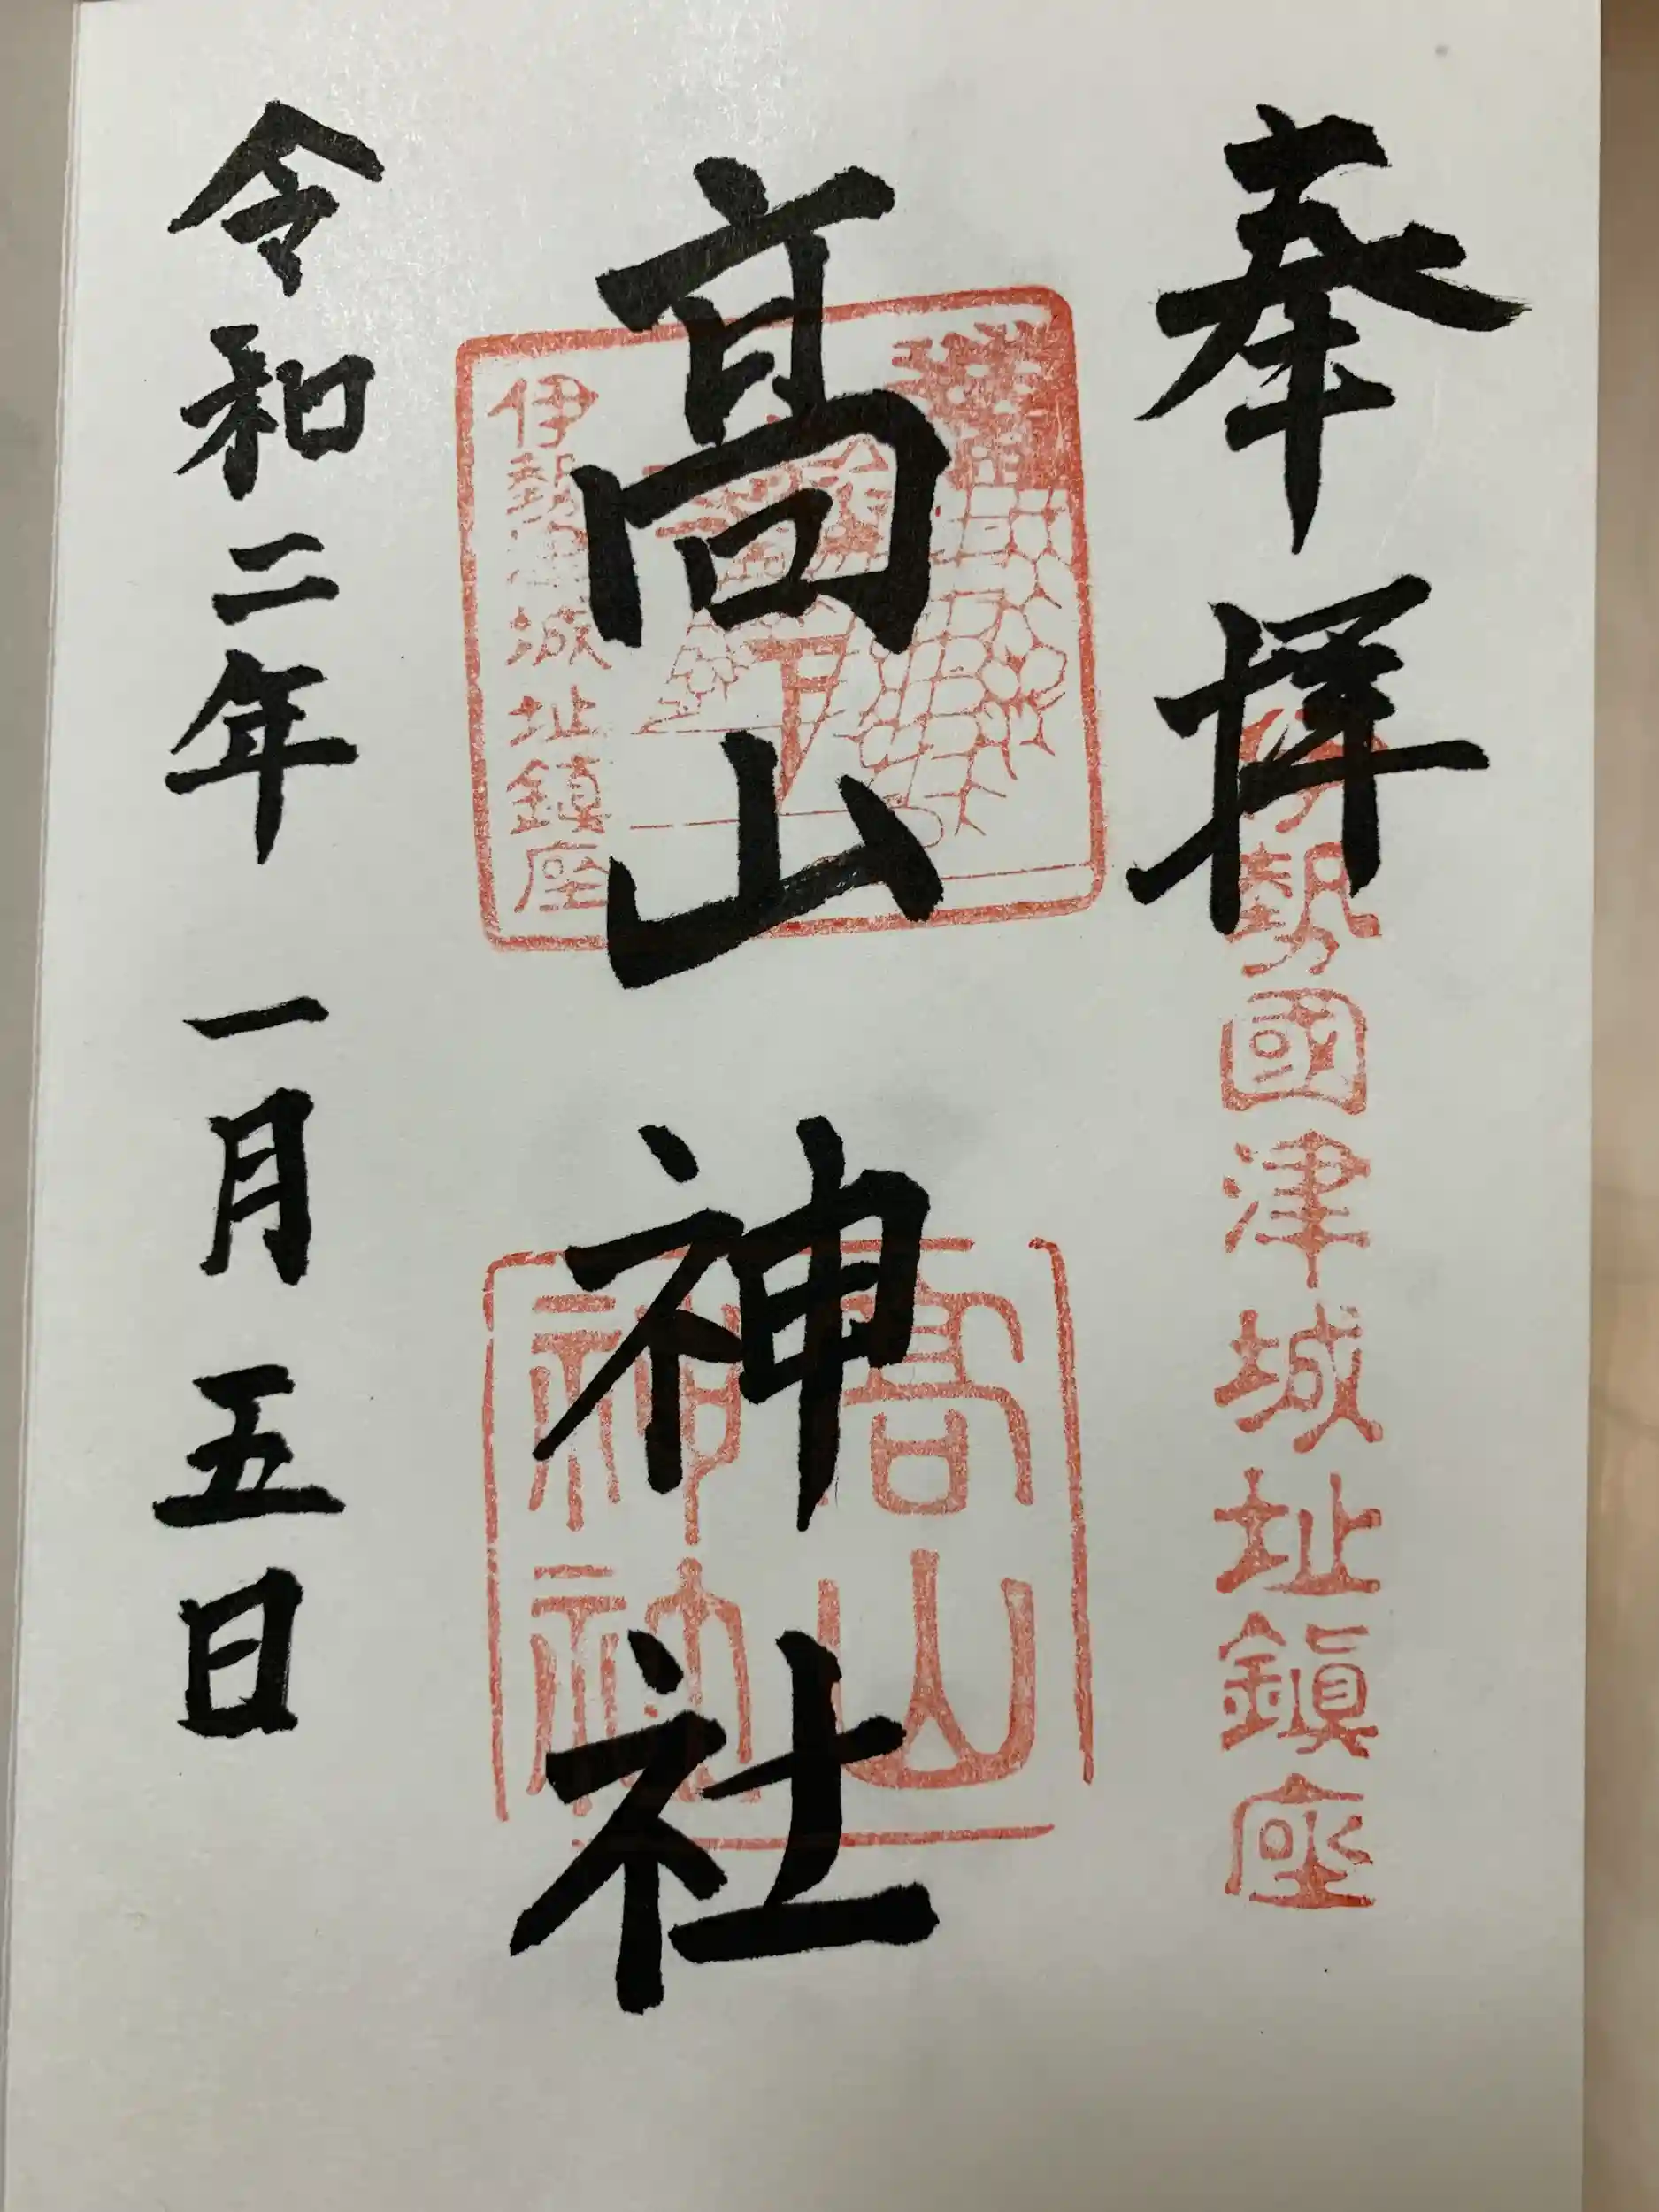 奉拝
伊勢國津城址鎮座
髙山神社
伊勢津城址鎮座
髙山
神社
令和二年一月五日